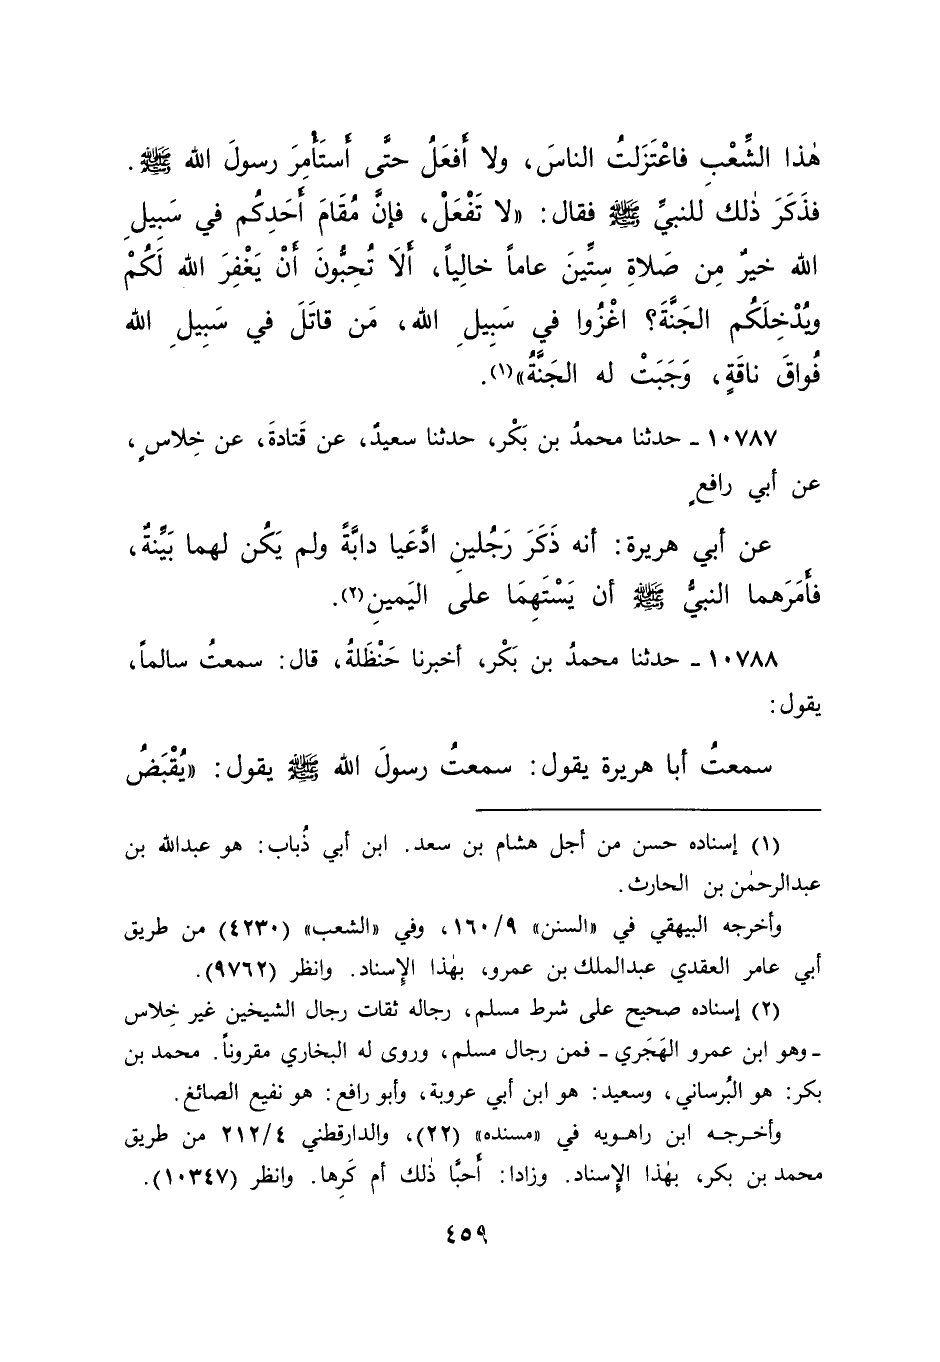 هٰذا الشِّعْبِ فاعْتَزَلتُ الناسَ، ولا أَفعَلُ حتَّى أَستَأْمِرَ رسولَ الله ﷺ.
فذَكَرَ ذٰلك للنبيِّ ﷺ فقال: «لا تَفْعَلْ، فإنَّ مُقَامَ أَحَدِكُم في سَبِيلِ
الله خيرٌ مِن صَلاةِ سِتِّينَ عاماً خالِياً، أَلَا تُحِبُّونَ أَنْ يَغْفِرَ الله لَكُمْ
ويُدْخِلَكُم الجَنَّةَ؟ اغْزُوا في سَبِيلِ الله، مَن قاتَلَ في سَبِيلِ الله
فُواقَ ناقَةٍ، وَجَبَتْ له الجَنَّةُ»(١).
١٠٧٨٧ - حدثنا محمدُ بن بَكْر، حدثنا سعيدٌ، عن قَتادةَ، عن خِلاسٍ،
عن أبي رافعٍ
عن أبي هريرة: أنه ذَكَرَ رَجُلينِ ادَّعَيا دابَّةً ولم يَكُن لهما بَيِّنةٌ،
فأَمَرَهما النبيُّ ﷺ أن يَسْتَهِمَا على اليَمينِ(٢).
١٠٧٨٨ - حدثنا محمدُ بن بَكْر، أخبرنا حَنْظَلةُ، قال: سمعتُ سالماً،
يقول:
سمعتُ أبا هريرة يقول: سمعتُ رسولَ الله ﷺ يقول: «يُقْبَضُ
(١) إسناده حسن من أجل هشام بن سعد. ابن أبي ذُباب: هو عبدالله بن
عبدالرحمٰن بن الحارث.
وأخرجه البيهقي في «السنن» ١٦٠/٩، وفي «الشعب» (٤٢٣٠) من طريق
أبي عامر العقدي عبدالملك بن عمرو، بهٰذا الإِسناد. وانظر (٩٧٦٢).
(٢) إسناده صحيح على شرط مسلم، رجاله ثقات رجال الشيخين غير خِلاس
- وهو ابن عمرو الهَجَري - فمن رجال مسلم، وروى له البخاري مقروناً. محمد بن
بكر: هو البُرساني، وسعيد: هو ابن أبي عروبة، وأبو رافع: هو نفيع الصائغ.
وأخرجه ابن راهويه في «مسنده» (٢٢)، والدارقطني ٢١٢/٤ من طريق
محمد بن بكر، بهٰذا الإِسناد. وزادا: أَحبَّا ذٰلك أم كَرِها. وانظر (١٠٣٤٧).
٤٥٩